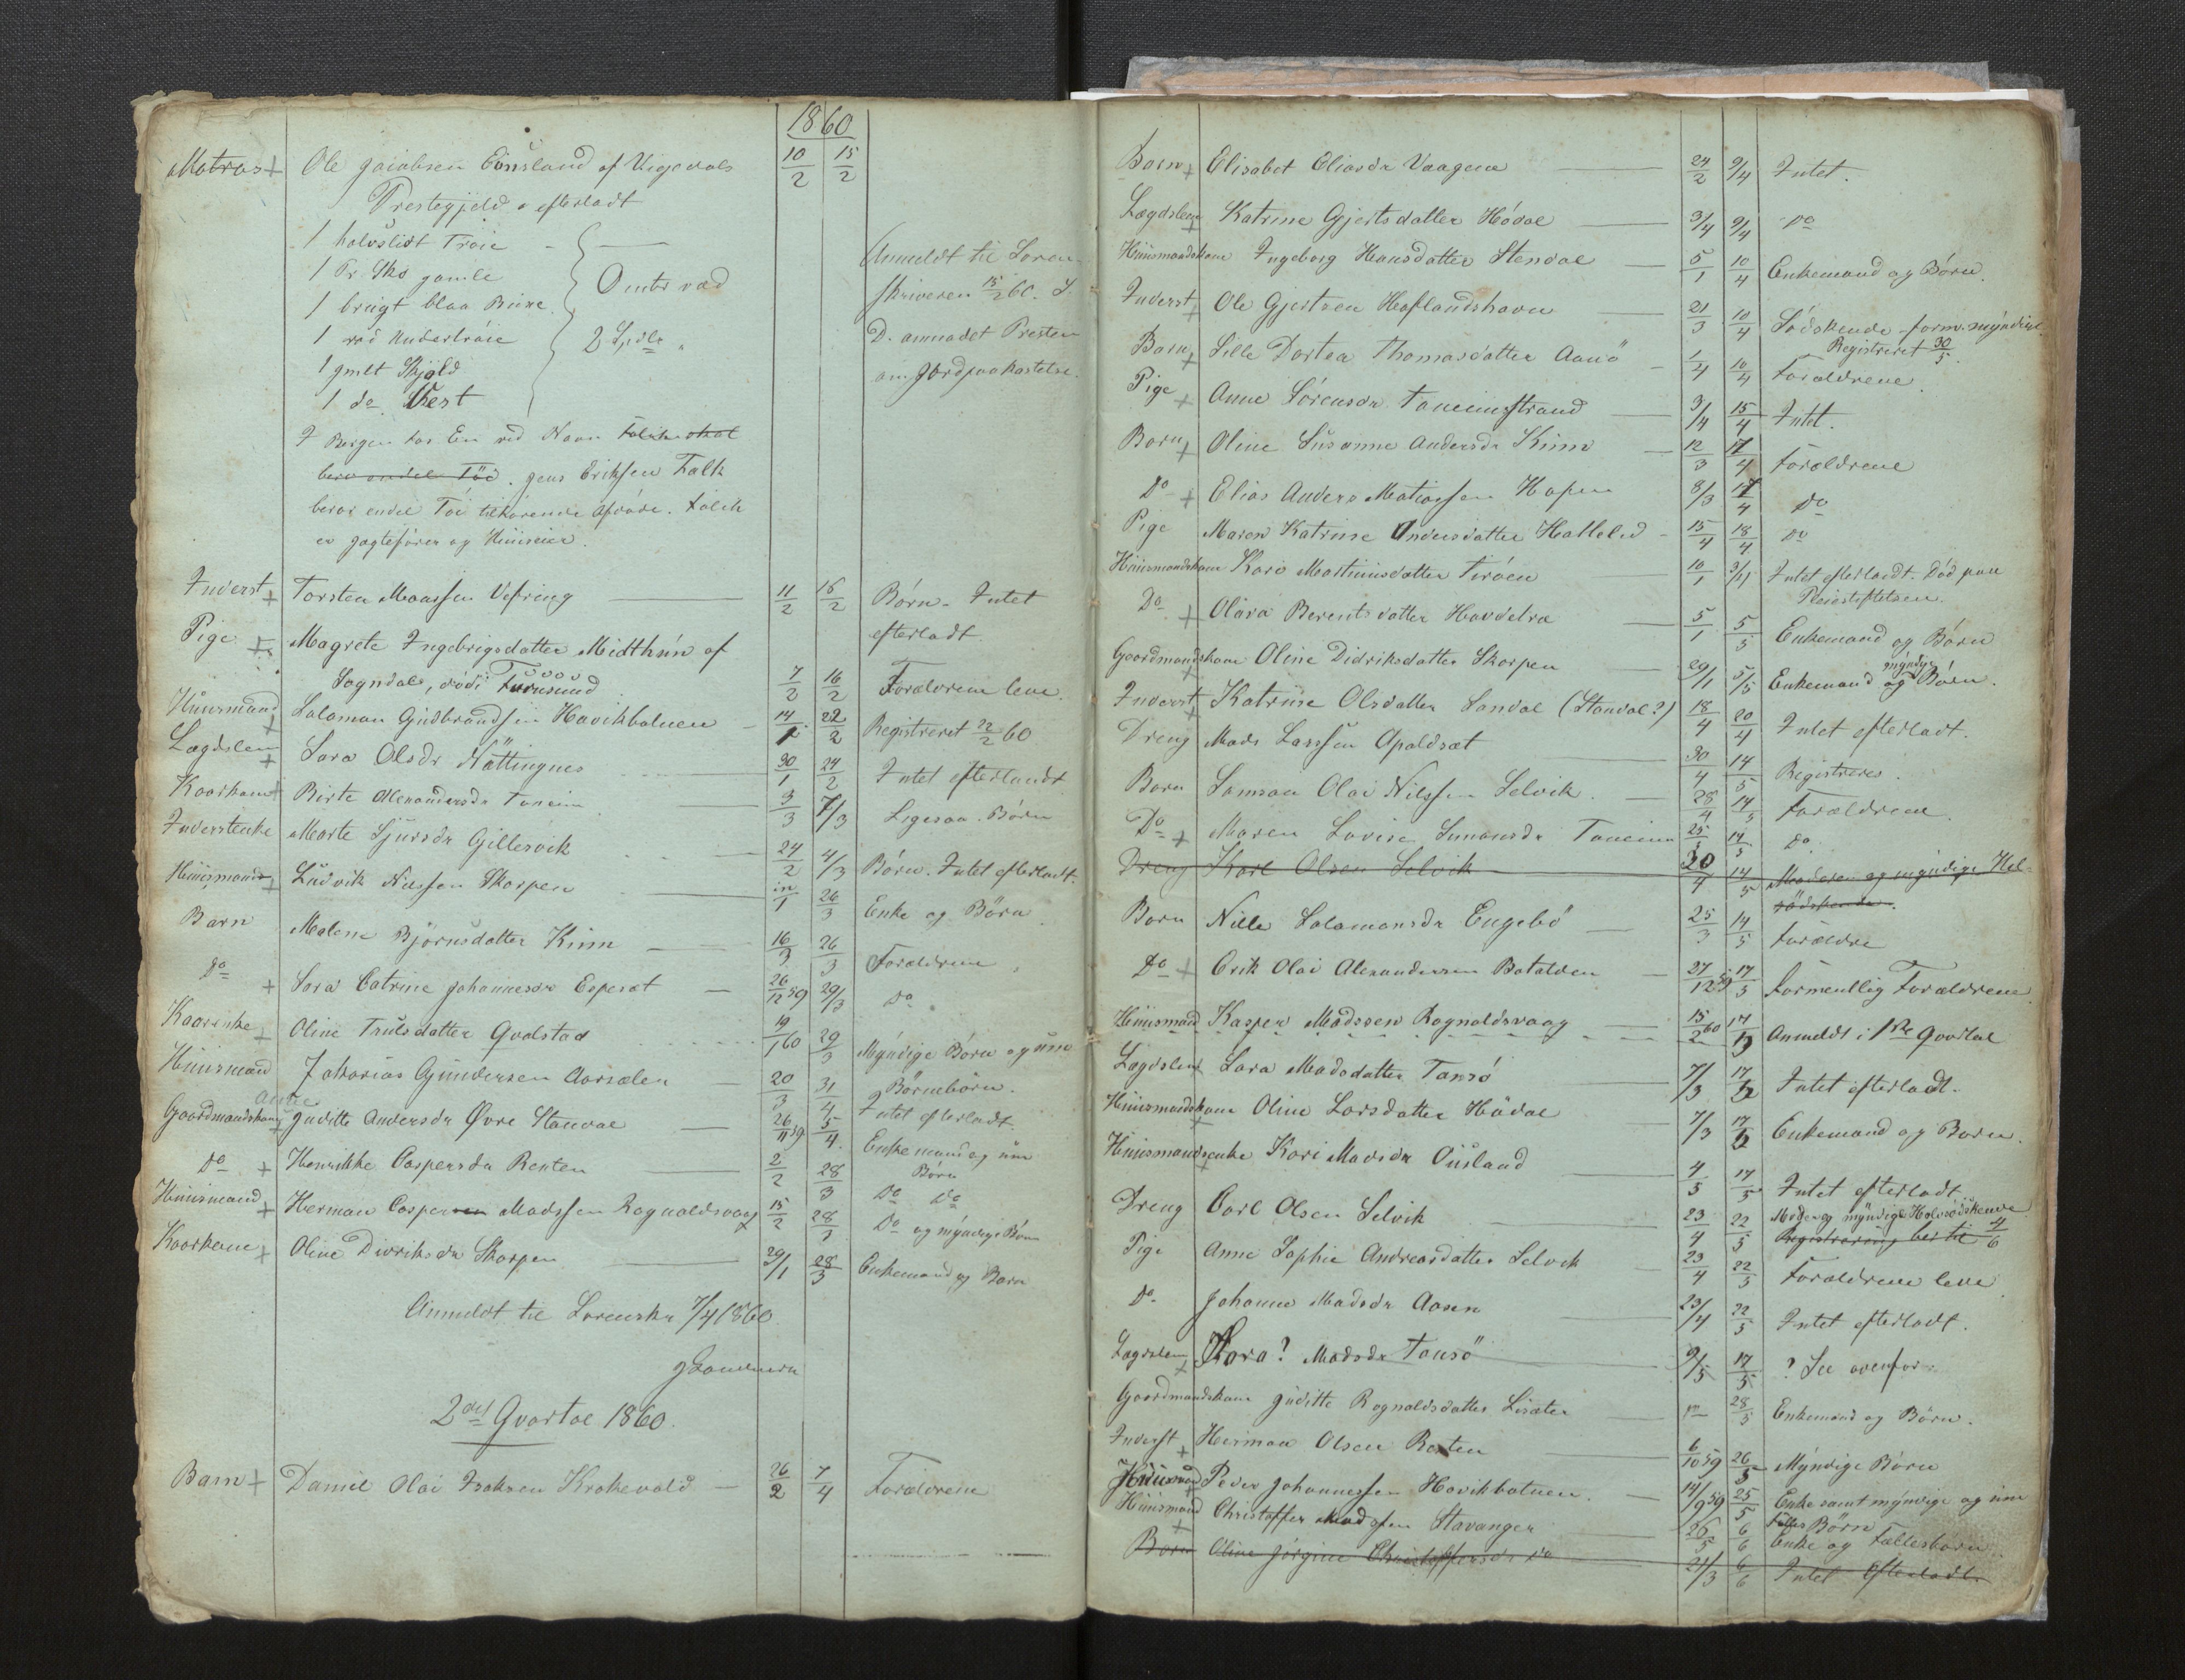 1860
Matros + Ole Jacobsen Eünsland af Urgedals 10/2 15/2
Prestegjeld. efterladt
1 halvslidt Trøie
1 Pr. Sko gamle
1 brügt blaa Büxe
1 rød Undertrøie
1 gmlt Skjold
1 do. Vest
Omtr ved
2 Spdlr
Anmeldt til Soren-
skriveren 15/2 60. S.
D. anmodet Presten
om Jordpaakastelse.
I Bergen har En ved Navn Falck
bero endel Töi. Jens Eriksen Falk
beror endel Tøi tilhørende Afdøde. Falck
er Jagtefører og Hüüseier.
Inderst + Torsten Monssen Vefring 11/2 16/2 Børn. Intet
efterladt
Pige + Magrete Ingebrigsdatter Midthün af
Sogndal, død i Furusund 7/2 16/2 Forældrene leve.
Hüüsmand + Salomon Gudbrandsen Havikbotnen 14/2 22/2 Registreret 22/2 60
Lægdslem + Sara Olsdr Nöttingnes 30/1 24/2 Intet efterladt
Kaarkone + Birte Alexandersdr Tonein 3/3 7/3 Ligesaa. Børn
Inderstenke Marte Sjursdr Gillesvik 24/2 4/3 Børn. Intet efterladt.
Hüüsmand + Ludvik Nilssen Skorpen in/1 26/3 Enke og Börn
Barn Malene Bjørnsdatter Kinn 16/3 26/3 Forældrene
Do + Sara Catrine Johannesdr Espeset 26/12 59 29/3 Do
Kaarenke + Oline Trulsdatter Qvalstad 19/1 60 29/3 Myndige Børn og um
Börnebörn.
Hüüsmand Zakarias Gündersen Aarsælen 20/3 31/4 Intet efterladt.
Anne
Gaardmandskone Juditte Andersdr Øvre Standal 26/11 59 5/4 Enkemand og um
Børn
Do + Henrikke Caspersdr Renten 2/2 28/3 Do Do
Hüüsmand + Herman Caspersen Madssen Rognaldsvaag 15/2 28/1 Do og myndige Børn
Kaarkone + Oline Didriksdr Skorpen 29/1 28/3 Enkemand og Børn
Anmeldt til Sorenskr 7/4 1860
2det Qvartal 1860.
Barn + Daniel Olai Isaksen Krokevald 26/2 7/4 Forældrene
Barn + Elisabet Eliasdr Vaagene 24/2 9/4 Intet.
Lægdslem + Katrine Gjertsdatter Hödal 3/4 9/4 Do
Hüüsmandskone Ingeborg Hansdatter Stendal 5/1 10/4 Enkemand og Børn.
Inderst + Ole Gjertsen Haflandshavn 21/3 10/4 Södskende form. myndige
Registreret 30/5.
Barn + Lille Dortea Thomasdatter Aanö 1/4 10/4 Forældrene.
Pige + Anne Sörensdr Toneimstrand 3/4 15/4 Intet.
Barn + Oline Susanne Andersdr Kinn 12/3 17/4 Forældrene
Do + Elias Anders Matiassen Hopen 8/3 17/4 Do
Pige Maren Katrine Andersdatter Hatleled 15/4 18/4 Do
Hüüsmandskone Kari Martinüsdatter Tiröen 10/1 9/4 Intet efterladt. Död paa
Pleiestiftelsen.
Do + Olära Berentsdatter Hovdelra 5/1 5/5 Enkemand og Børn
Gaardmandskone Oline Didriksdatter Skorpen 29/1 5/5 Enkemand og myndige Børn.
Inderst + Katrine Olsdatter Sandal (Standal?) 18/4 20/4 Intet efterladt.
Dreng Mads Lassen Apaldset 30/4 14/5 Registreres.
Barn Samson Olai Nilssen Selvik 28/4 14/5 Forældrene.
Do + Maren Lovise Simonsdr Toneim 25/5 14/5 Do
Dreng Karl Olsen Selvik 20/4 14/5 Moderen og myndige Hel-
södskende.
Barn Nille Salamonsdr Engebö 25/3 14/5 Forældre
Do + Erik Olai Alexandersen Batalden 27/12 59 17/5 Formentlig Forældrene
Hüüsmand Kasper Madssen Rognaldsvaag 15/2 60 17/5 Anmeldt i 1ste Qvartal
Lægdslem Sara Madsdatter Tansö 7/3 17/5 Intet efterladt.
Hüüsmandskone + Oline Larsdatter Hödal 7/3 17/5 Enkemand og Børn.
Hüüsmandsenke + Kari Madsdr Ousland 4/5 17/5 Intet efterladt
Dreng Carl Olsen Selvik 23/4 22/5 Moder og myndige Halvsødskende
Registrering bestilt 4/6
Pige Anne Sophie Andreasdatter Selvik 23/4 22/5 Forældrene leve
Do Johanne Madsdr Aasen 23/4 22/5 Intet efterladt.
Lægdslem + Sara? Madsdr Tansö 9/5 17/5 ? See ovenfor
Gaardmandskone Juditte Rognaldsdatter Lisæter 28/5 Enkemand og Börn.
Inderst + Herman Olsen Rosten 6/10 59 26/5 Myndige Börn
Hüüsmand Peder Johannessen Havikbotnen 14/9 59 25/5 Enke samt myndige og um
fælles Börn
Hüüsmand + Christoffer Madssen Stavanger 26/5 6/6 Enke og Fællesbørn
Barn Oline Jörgine Christoffersdr Do 21/3 6/6 Intet Efterladt.